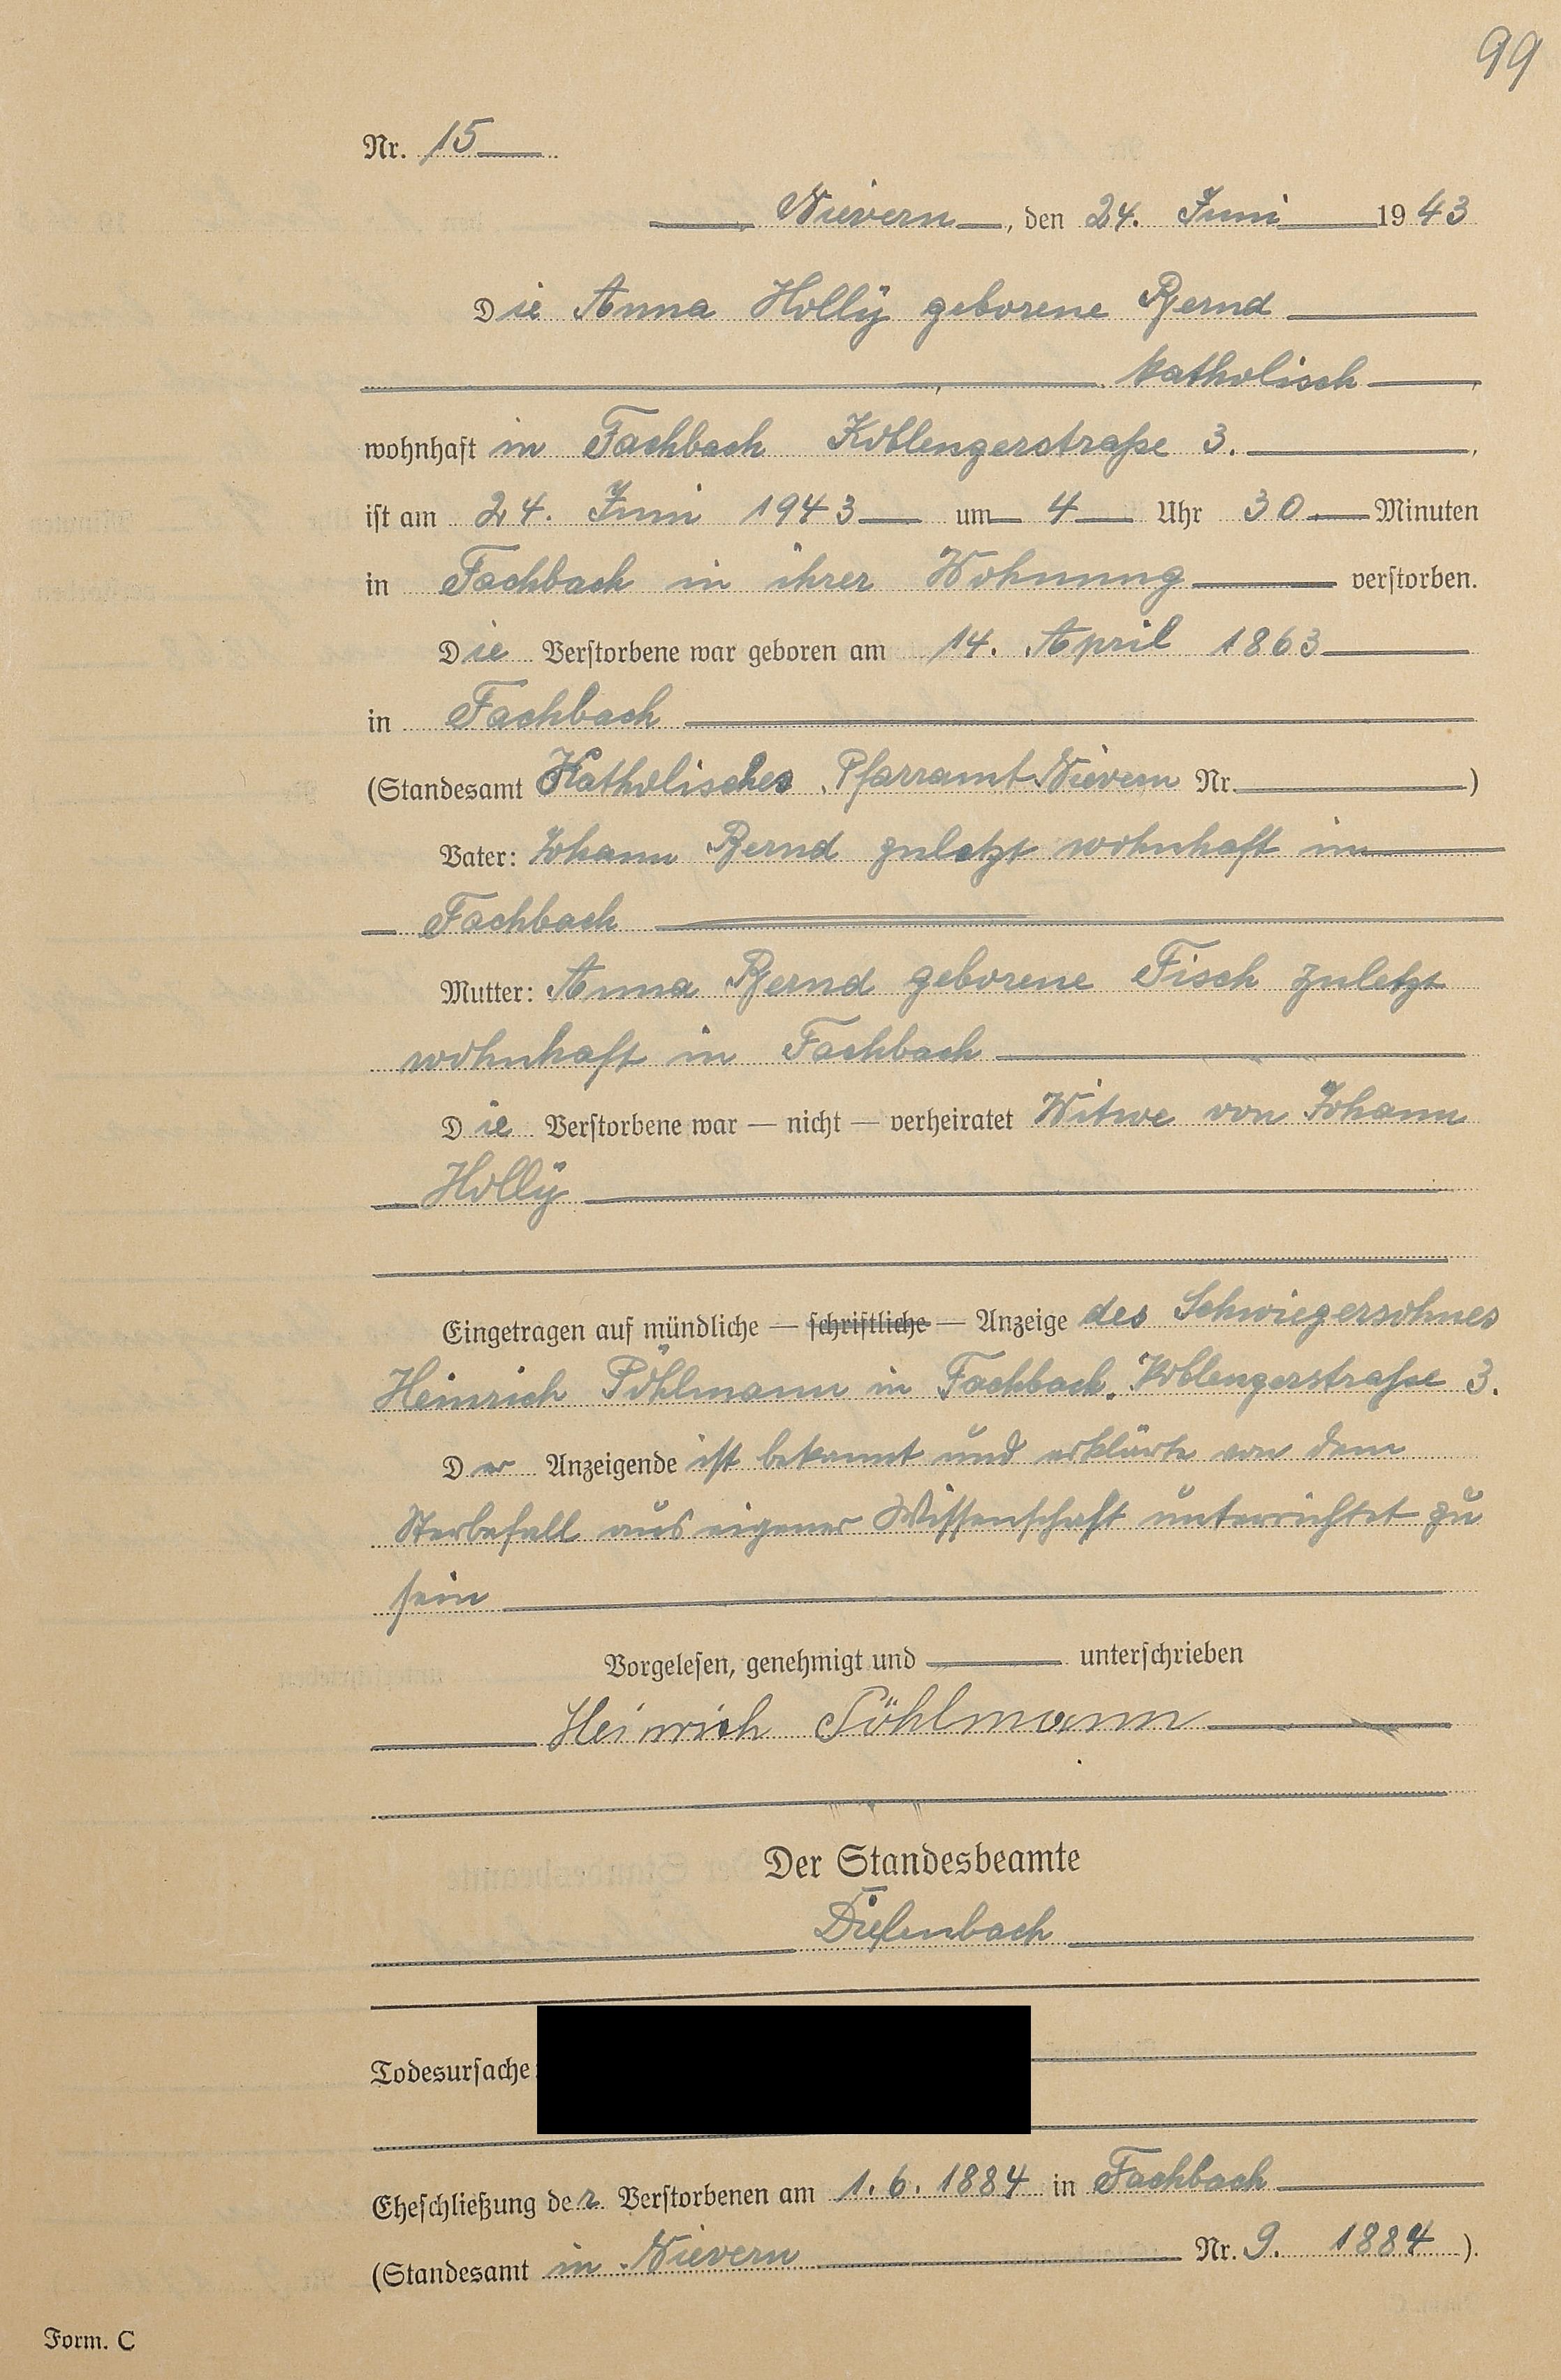 99
Nr. 15
Nievern, den 24. Juni 1943
Die Anna Hollÿ geborene Bernd
katholisch,
wohnhaft in Fachbach Koblengerstraße 3.,
ist am 24. Juni 1943 um 4 Uhr 30 Minuten
in Fachbach in ihrer Wohnung verstorben.
Die Verstorbene war geboren am 14. April 1863
in Fachbach
(Standesamt Katholisches Pfarramt Nievern Nr. )
Vater: Johann Bernd zuletzt wohnhaft in
Fachbach
Mutter: Anna Bernd geborene Fisch zuletzt
wohnhaft in Fachbach
Die Verstorbene war — nicht — verheiratet Witwe von Johann
Hollÿ
Eingetragen auf mündliche — schriftliche — Anzeige des Schwiegersohnes
Heinrich Pöhlmann in Fachbach. Koblengerstraße 3.
Der Anzeigende ist bekannt und erklärte von dem
Sterbefall aus eigener Wissenschaft unterrichtet zu
sein
Vorgelesen, genehmigt und unterschrieben
Heinrich Pöhlmann
Der Standesbeamte
Diefenbach
Todesursache:
Eheschließung der Verstorbenen am 1.6.1884 in Fachbach
(Standesamt in Nievern Nr. 9. 1884).
Form. C